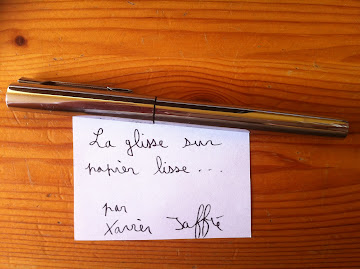 La glisse sur
papier lisse...
par
Xavier Jaffré